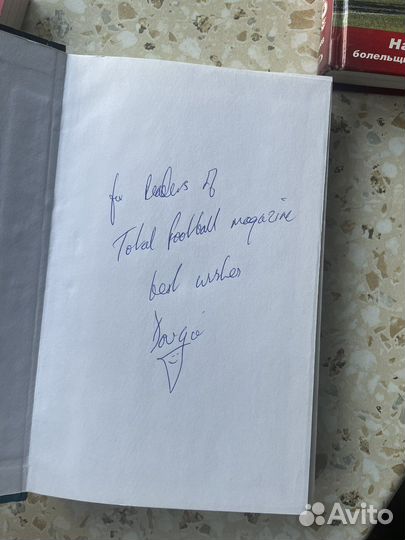 for Readers of
Total Football magazine
best wishes
Dougie
На
болельщи
Avito